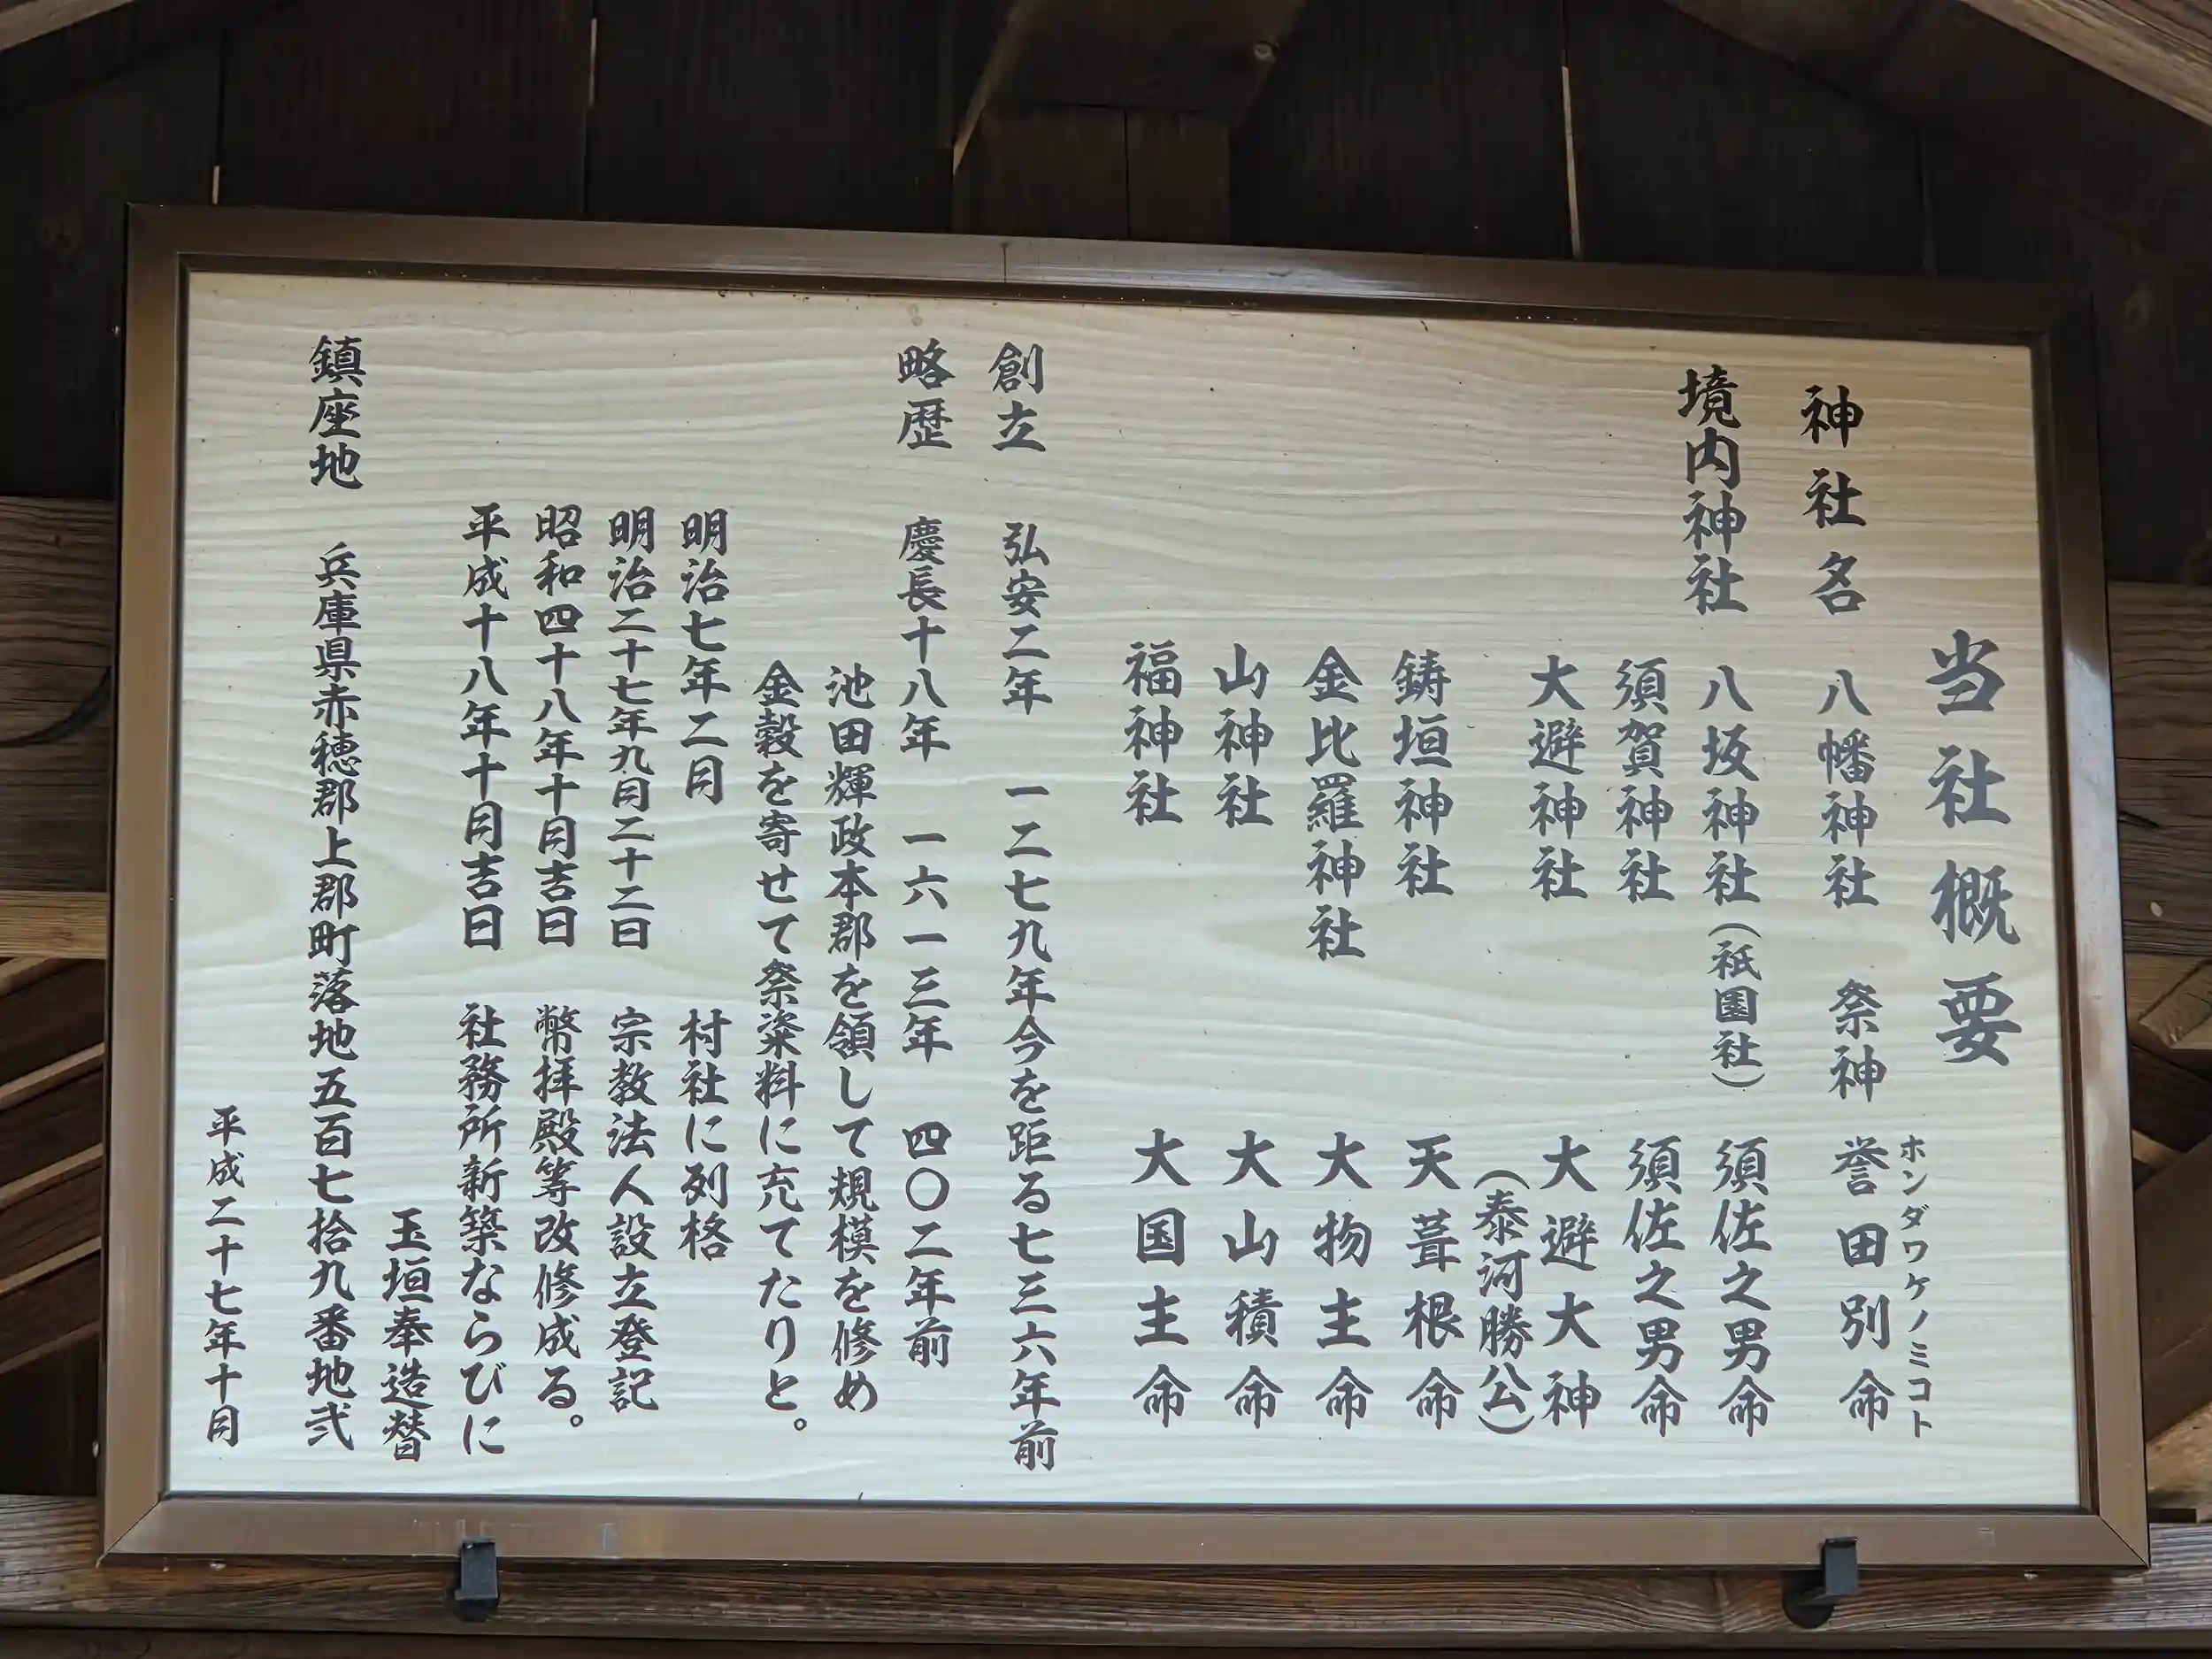 当社概要
神社名 八幡神社 祭神 誉田別命
ホンダワケノミコト
境内神社 八坂神社(祇園社) 須佐之男命
須賀神社 須佐之男命
大避神社 大避大神
(泰河勝公)
鋳垣神社 天葺根命
金比羅神社 大物主命
山神社 大山積命
福神社 大国主命
創立 弘安二年 一二七九年今を距る七三六年前
略歴 慶長十八年 一六一三年 四〇二年前
池田輝政本郡を領して規模を修め
金穀を寄せて祭粢料に充てたりと。
明治七年二月 村社に列格
明治二十七年九月二十二日 宗教法人設立登記
昭和四十八年十月吉日 幣拝殿等改修成る。
平成十八年十月吉日 社務所新築ならびに
玉垣奉造替
鎮座地 兵庫県赤穂郡上郡町落地五百七拾九番地弐
平成二十七年十月